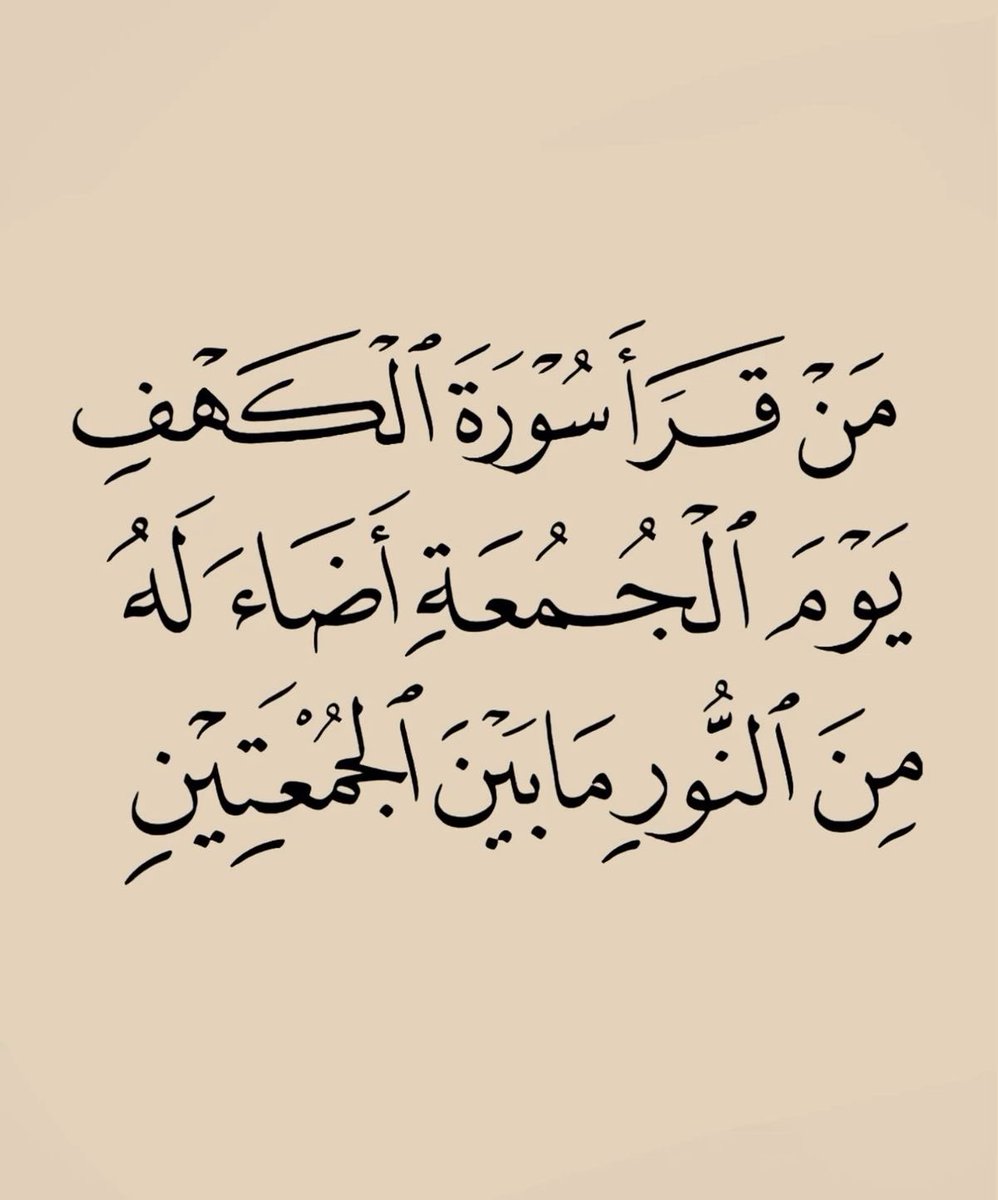 مَنْ قَرَأَ سُوْرَةَ ٱلْكَهْفِ
يَوْمَ ٱلْجُمُعَةِ أَضَاءَ لَهُ
مِنَ ٱلنُّورِ مَا بَيْنَ ٱلْجُمُعَتَيْنِ